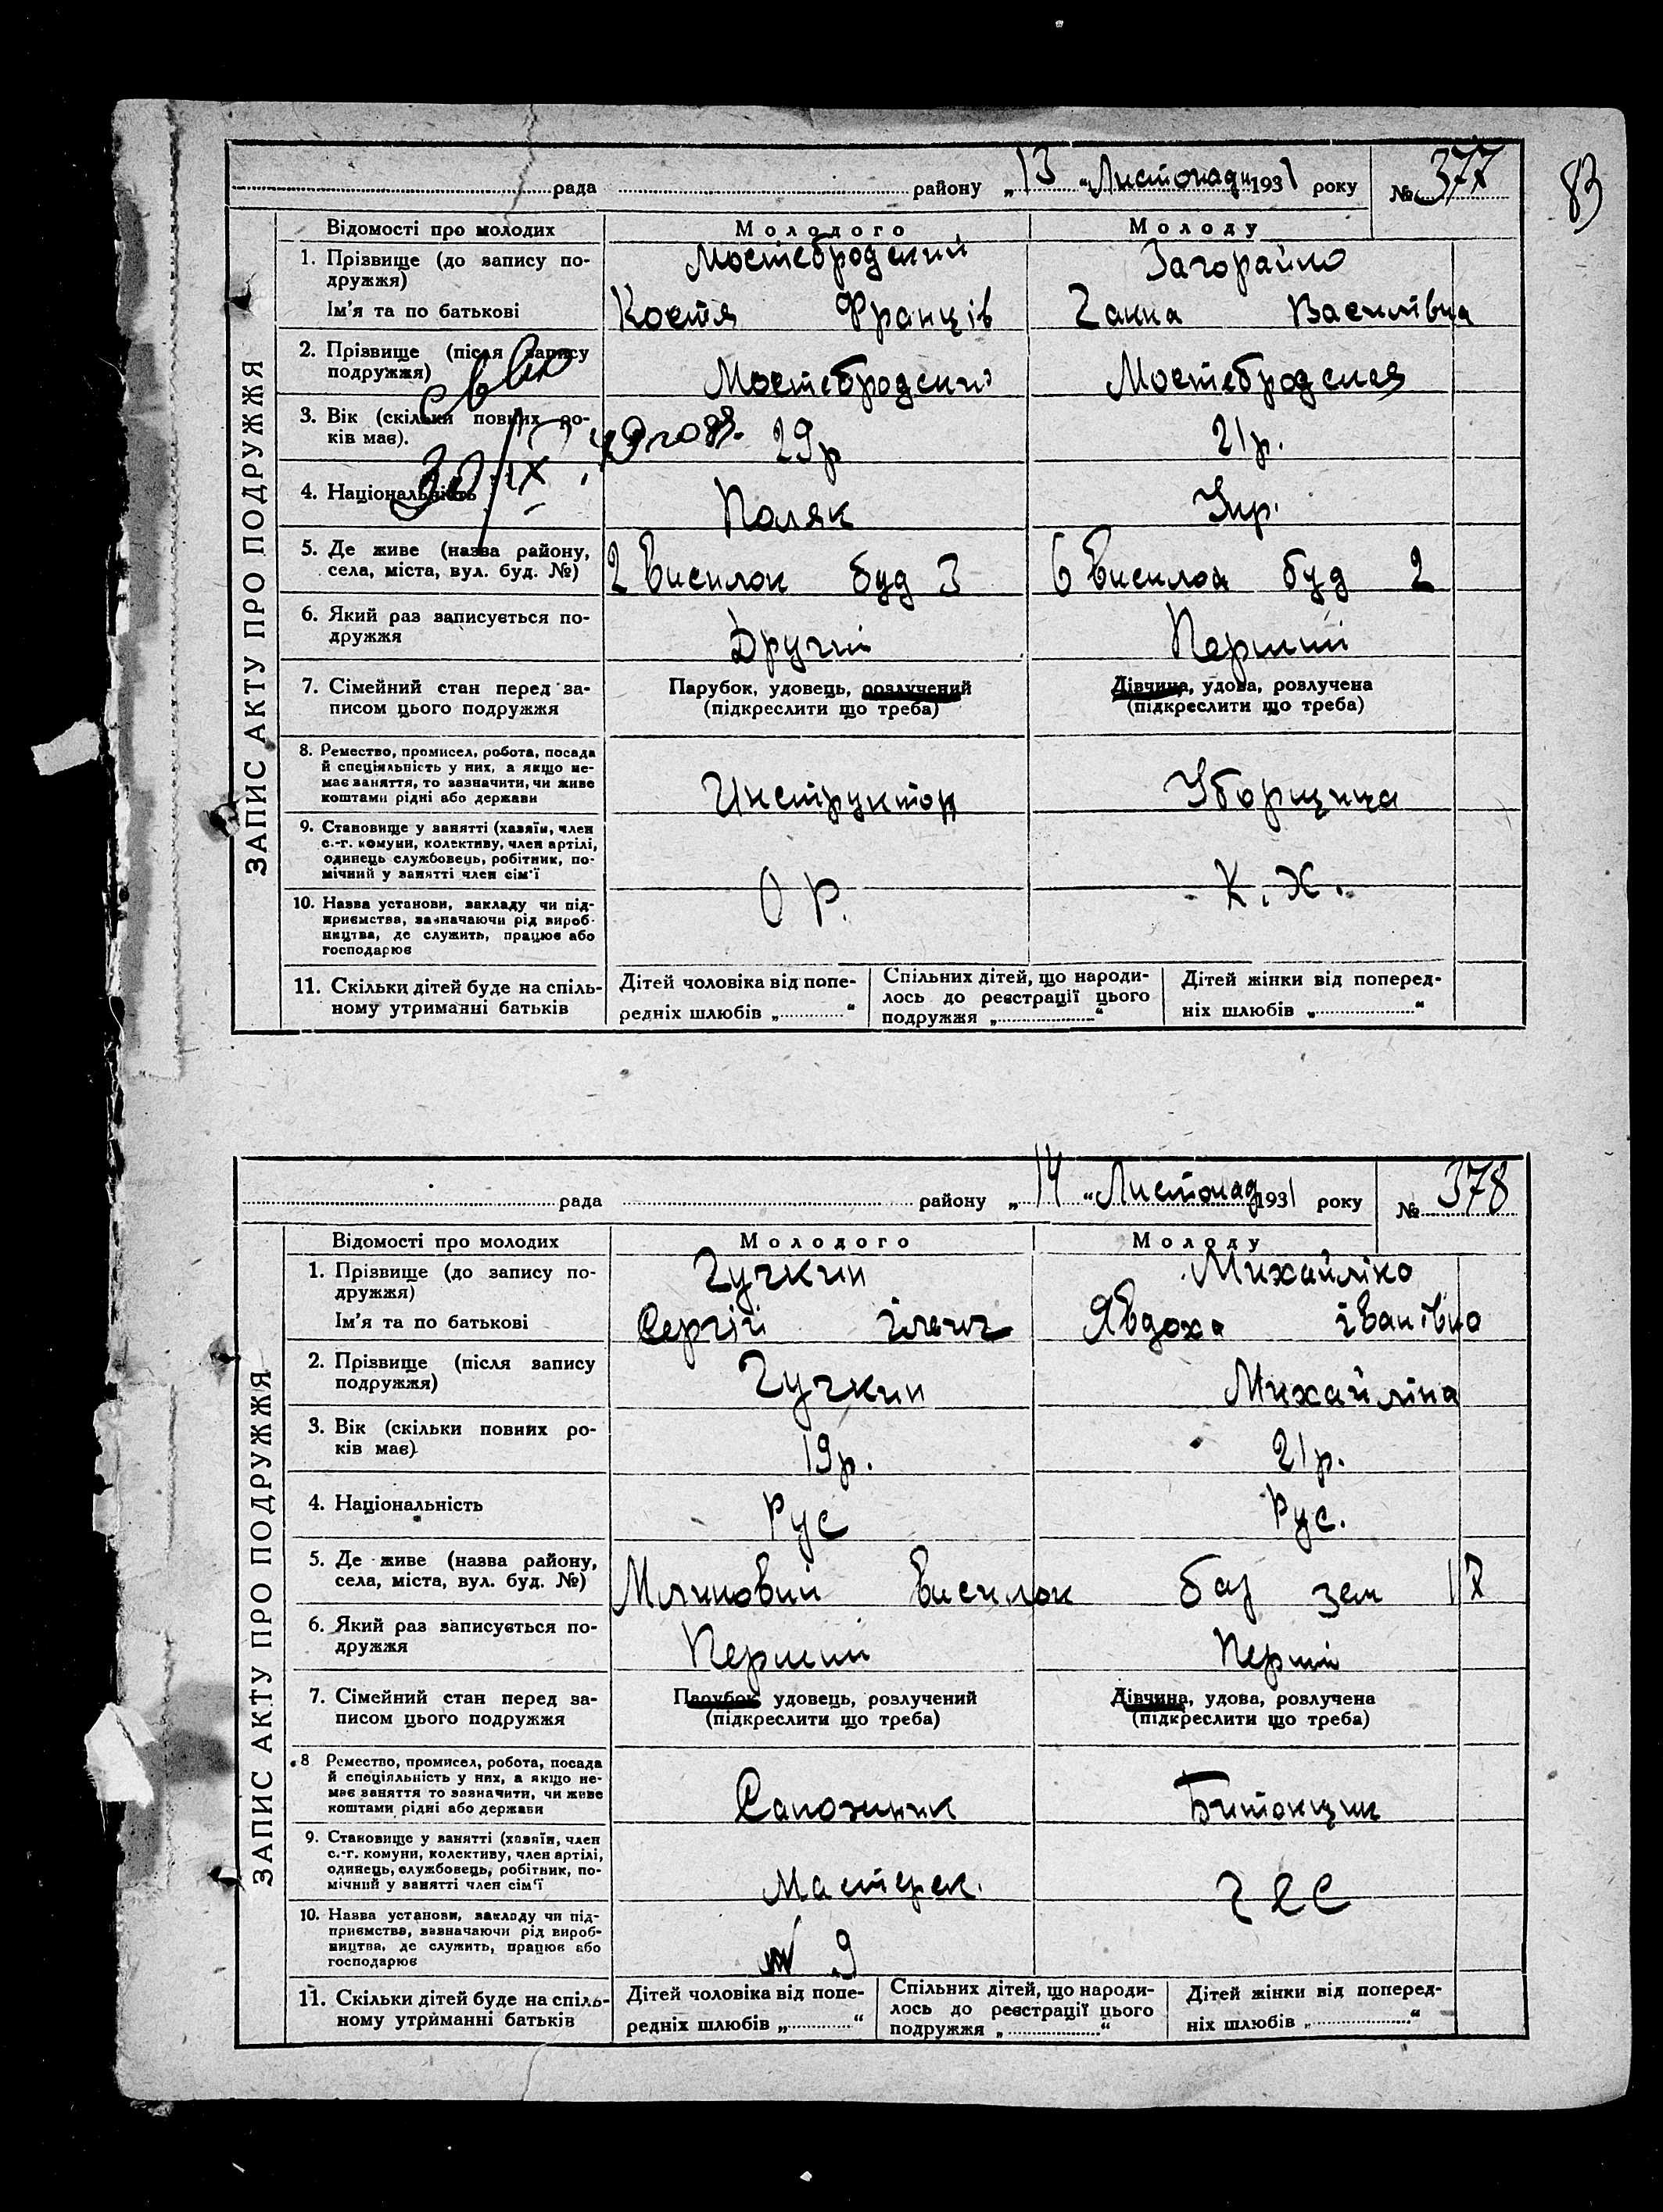 83
рада району „13“ Листопада 1931 року № 377
ЗАПИС АКТУ ПРО ПОДРУЖЖЯ
Відомості про молодих Молодого Молоду
1. Прізвище (до запису по-
дружжя)
Мостебродский Загорайко
Ім'я та по батькові Костя Франців Ганна Василівна
2. Прізвище (після запису
подружжя)
Мостебродский Мостебродская
3. Вік (скільки повних ро-
ків має).
29р 21р.
4. Національність Поляк Укр.
5. Де живе (назва району,
села, міста, вул. буд. №)
2 Висилок буд 3 6 Висилок буд 2
6. Який раз записується по-
дружжя
Другий Перший
7. Сімейний стан перед за-
писом цього подружжя
Парубок, удовець, розлучений
(підкреслити що треба)
Дівчина, удова, розлучена
(підкреслити що треба)
8. Ремество, промисел, робота, посада
й спеціяльність у них, а якщо не-
має заняття, то зазначити, чи живе
коштами рідні або держави
Инструктор Уборщица
9. Становище у занятті (хазяїн, член
с.-г. комуни, колективу, член артілі,
одинець службовець, робітник, по-
мічний у занятті член сім'ї
О Р. К. Х.
10. Назва установи, закладу чи під-
приємства, зазначаючи рід вироб-
ництва, де служить, працює або
господарює
11. Скільки дітей буде на спіль-
ному утриманні батьків
Дітей чоловіка від попе-
редніх шлюбів „ “
Спільних дітей, що народи-
лось до реєстрації цього
подружжя „ “
Дітей жінки від поперед-
ніх шлюбів „ “
рада району „14“ Листопад 1931 року № 378
ЗАПИС АКТУ ПРО ПОДРУЖЖЯ
Відомості про молодих Молодого Молоду
1. Прізвище (до запису по-
дружжя)
Гучкин Михайліно
Ім'я та по батькові Сергій Ілеич Явдоха Іванівно
2. Прізвище (після запису
подружжя)
Гучкин Михайліна
3. Вік (скільки повних ро-
ків має).
19р. 21р.
4. Національність Рус Рус.
5. Де живе (назва району,
села, міста, вул. буд. №)
Млиновий висилок зем 17
6. Який раз записується по-
дружжя
Перший Перший
7. Сімейний стан перед за-
писом цього подружжя
Парубок удовець, розлучений
(підкреслити що треба)
Дівчина, удова, розлучена
(підкреслити що треба)
8 Ремество, промисел, робота, посада
й спеціяльність у них, а якщо не-
має заняття то зазначити, чи живе
коштами рідні або держави
Сапожник Битонщик
9. Становище у занятті (хазяїн, член
с.-г. комуни, колективу, член артілі,
одинець, службовець, робітник, по-
мічний у занятті член сім'ї
Мастерск.
10. Назва установи, закладу чи під-
приємства, зазначаючи рід вироб-
ництва, де служить, працює або
господарює
№ 9
11. Скільки дітей буде на спіль-
ному утриманні батьків
Дітей чоловіка від попе-
редніх шлюбів „ “
Спільних дітей, що народи-
лось до реєстрації цього
подружжя „ “
Дітей жінки від поперед-
ніх шлюбів „ “